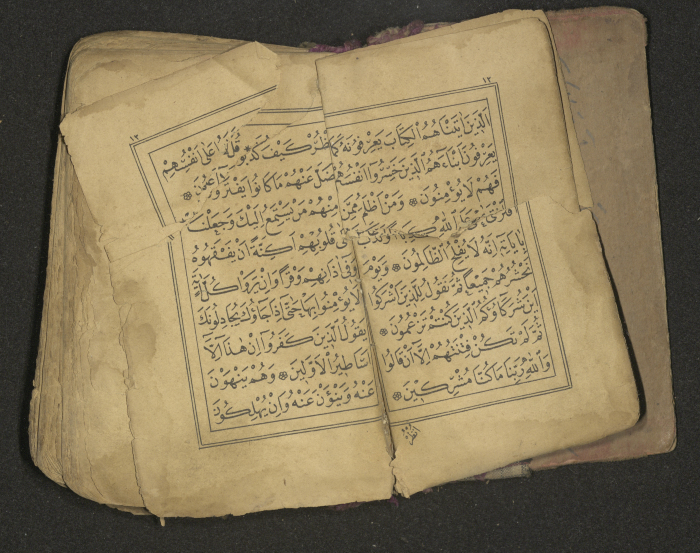 ١٢
اَلَّذِينَ اٰتَيْنَاهُمُ الْكِتَابَ يَعْرِفُونَهُ كَمَا
يَعْرِفُونَ اَبْنَاءَهُمُ الَّذِينَ خَسِرُوا اَنْفُسَهُمْ
فَهُمْ لَا يُؤْمِنُونَ ۞ وَمَنْ اَظْلَمُ مِمَّنِ
افْتَرٰى عَلَى اللّٰهِ كَذِبًا اَوْ كَذَّبَ
بِاٰيَاتِهِ اِنَّهُ لَا يُفْلِحُ الظَّالِمُونَ ۞ وَيَوْمَ
نَحْشُرُهُمْ جَمِيعًا ثُمَّ نَقُولُ لِلَّذِينَ اَشْرَكُوا
اَيْنَ شُرَكَاؤُكُمُ الَّذِينَ كُنْتُمْ تَزْعُمُونَ ۞
ثُمَّ لَمْ تَكُنْ فِتْنَتُهُمْ اِلَّا اَنْ قَالُوا
وَاللّٰهِ رَبِّنَا مَا كُنَّا مُشْرِكِينَ ۞
اُنْظُرْ
١٣
اُنْظُرْ كَيْفَ كَذَبُوا عَلٰى اَنْفُسِهِمْ
وَضَلَّ عَنْهُمْ مَا كَانُوا يَفْتَرُونَ ۞
وَمِنْهُمْ مَنْ يَسْتَمِعُ اِلَيْكَ وَجَعَلْنَا
عَلٰى قُلُوبِهِمْ اَكِنَّةً اَنْ يَفْقَهُوهُ
وَفِي اٰذَانِهِمْ وَقْرًا وَاِنْ يَرَوْا كُلَّ اٰيَةٍ
لَا يُؤْمِنُوا بِهَا حَتّٰى اِذَا جَاؤُكَ يُجَادِلُونَكَ
يَقُولُ الَّذِينَ كَفَرُوا اِنْ هٰذَا اِلَّا
اَسَاطِيرُ الْاَوَّلِينَ ۞ وَهُمْ يَنْهَوْنَ
عَنْهُ وَيَنْؤَنَ عَنْهُ وَاِنْ يُهْلِكُونَ